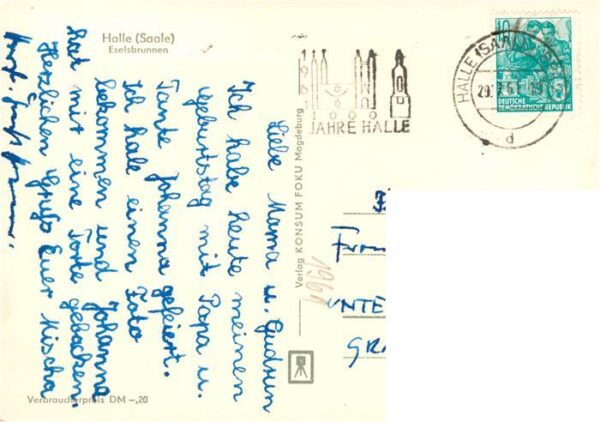 Halle (Saale)
Eselsbrunnen
1961
1000
JAHRE HALLE
HALLE (SAALE)
29.
d
10
DEUTSCHE
DEMOKRATISCHE REPUBLIK
Liebe Mama u. Gudrun
Ich habe heute meinen
Geburtstag mit Papa u.
Tante Johanna gefeiert.
Ich habe einen Foto
bekommen und Johanna
hat mir eine Torte gebacken.
Herzlichen Gruß Euer Mischa
Verlag KONSUM FOKU Magdeburg
1961
UNTE
GR
Verbraucherpreis DM –,20